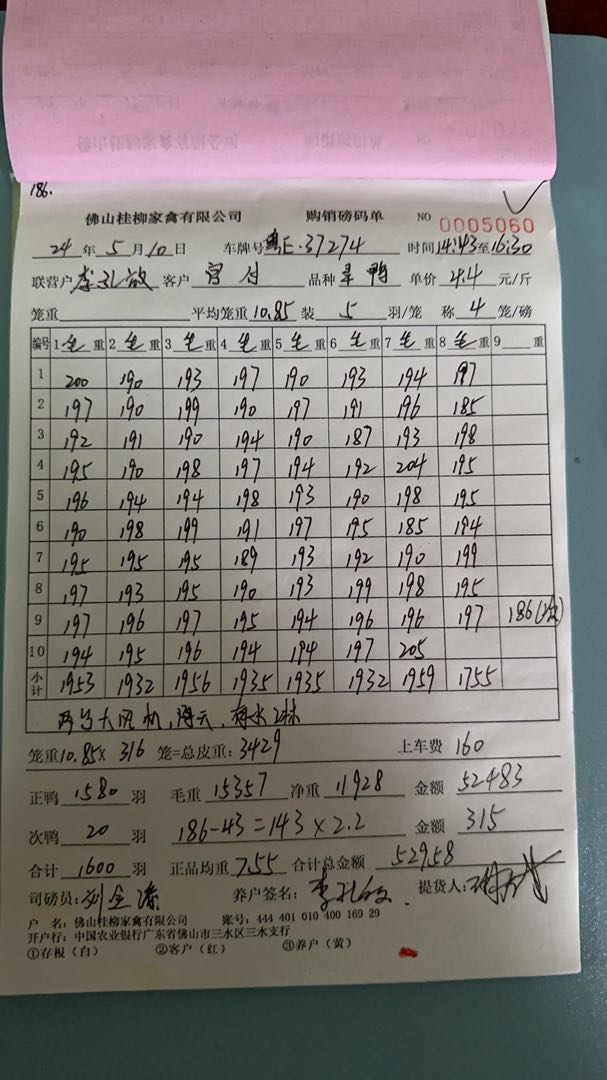 186.
佛山桂柳家禽有限公司 购销磅码单 NO 0005060
24 年 5 月 10 日 车牌号 粤E·37274 时间 14:43 至 16:30
联营户 李孔敏 客户 宫付 品种 鸭 单价 4.4 元/斤
笼重 平均笼重 10.85 装 5 羽/笼 称 4 笼/磅
编号 1 毛 重 2 毛 重 3 毛 重 4 毛 重 5 毛 重 6 毛 重 7 毛 重 8 毛 重 9 重
1 200 190 193 197 190 193 194 197
2 197 190 199 190 197 191 196 185
3 192 191 190 194 190 187 193 198
4 195 190 198 197 194 192 204 195
5 196 194 194 198 193 190 198 195
6 190 198 199 191 197 195 185 194
7 195 195 195 189 193 192 190 199
8 197 193 195 190 193 199 198 195
9 197 196 197 195 194 196 196 197 186(次)
10 194 195 196 194 194 197 205
小计 1953 1932 1956 1935 1935 1932 1959 1755
两台大风机,
笼重 10.85 × 316 笼=总皮重: 3429 上车费 160
正鸭 1580 羽 毛重 15357 净重 11928 金额 52483
次鸭 20 羽 186-43=143×2.2 金额 315
合计 1600 羽 正品均重 7.55 合计总金额 52958
司磅员: 刘金 养户签名: 李孔敏. 提货人:
户 名: 佛山桂柳家禽有限公司 账号: 444 401 010 400 169 29
开户行: 中国农业银行广东省佛山市三水区三水支行
①存根(白) ②客户(红) ③养户(黄)